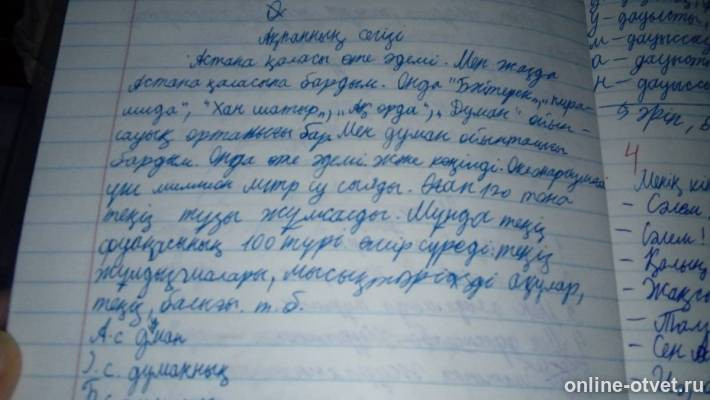 Ақпанның сегізі
Астана қаласы өте әдемі. Мен жазда
Астана қаласына бардым. Онда "Бәйтерек", "пира-
мида", "Хан шатыр", "Ақ орда", "Думан" ойын-
сауық орталығы бар. Мен думан ойынтаншы
бардым. Онда өте әдемі және көңілді.
үш миллион литр су сыяды. Оған 120 тонна
теңіз тузы жұмсалды. Мұнда теңіз
фуанасының 100 түрі өмір сүреді: теңіз
жұлдызшалары, мысық тәрізді ақулар,
теңіз, балығы. т.б.
А.с думан
І.с. думанның
Б.с
у - дауысты,
м - дауыссыз
а - дауысты
н - дауыссы
5 әріп, 5
4
Менің
- Сәлем
- Сәлем!
- Қалың
- Жақсы
- Сен
online-otvet.ru